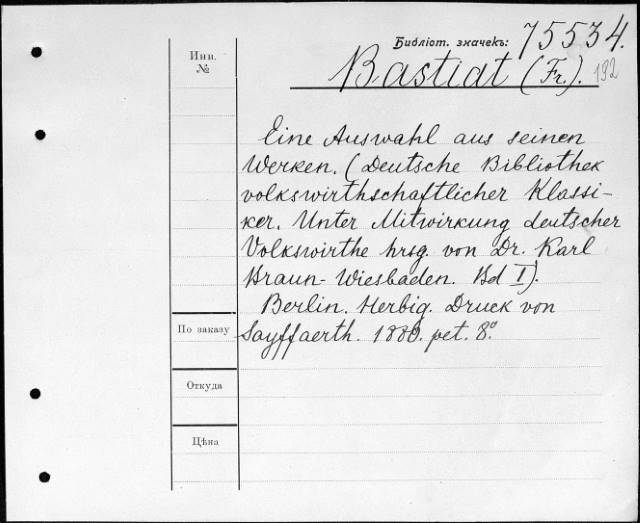 Инв.
№
Библіот. значекъ: 75534.
Bastiat (Fr.). 192
Eine Auswahl aus seinen
Werken. (Deutsche Bibliothek
volkswirthschaftlicher Klassi-
ker. Unter Mitwirkung deutscher
Volkswirthe hrsg. von Dr. Karl
Braun-Wiesbaden. Bd I).
Berlin. Herbig. Druck von
Sayffaerth. 1880. pet. 8º
По заказу
Откуда
Цѣна